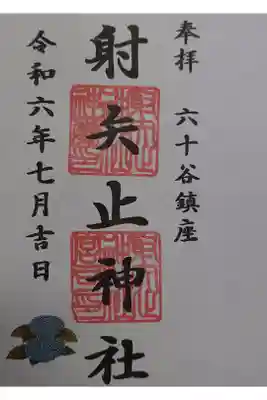 奉拝
六十谷鎮座
射矢止神社
令和六年七月吉日